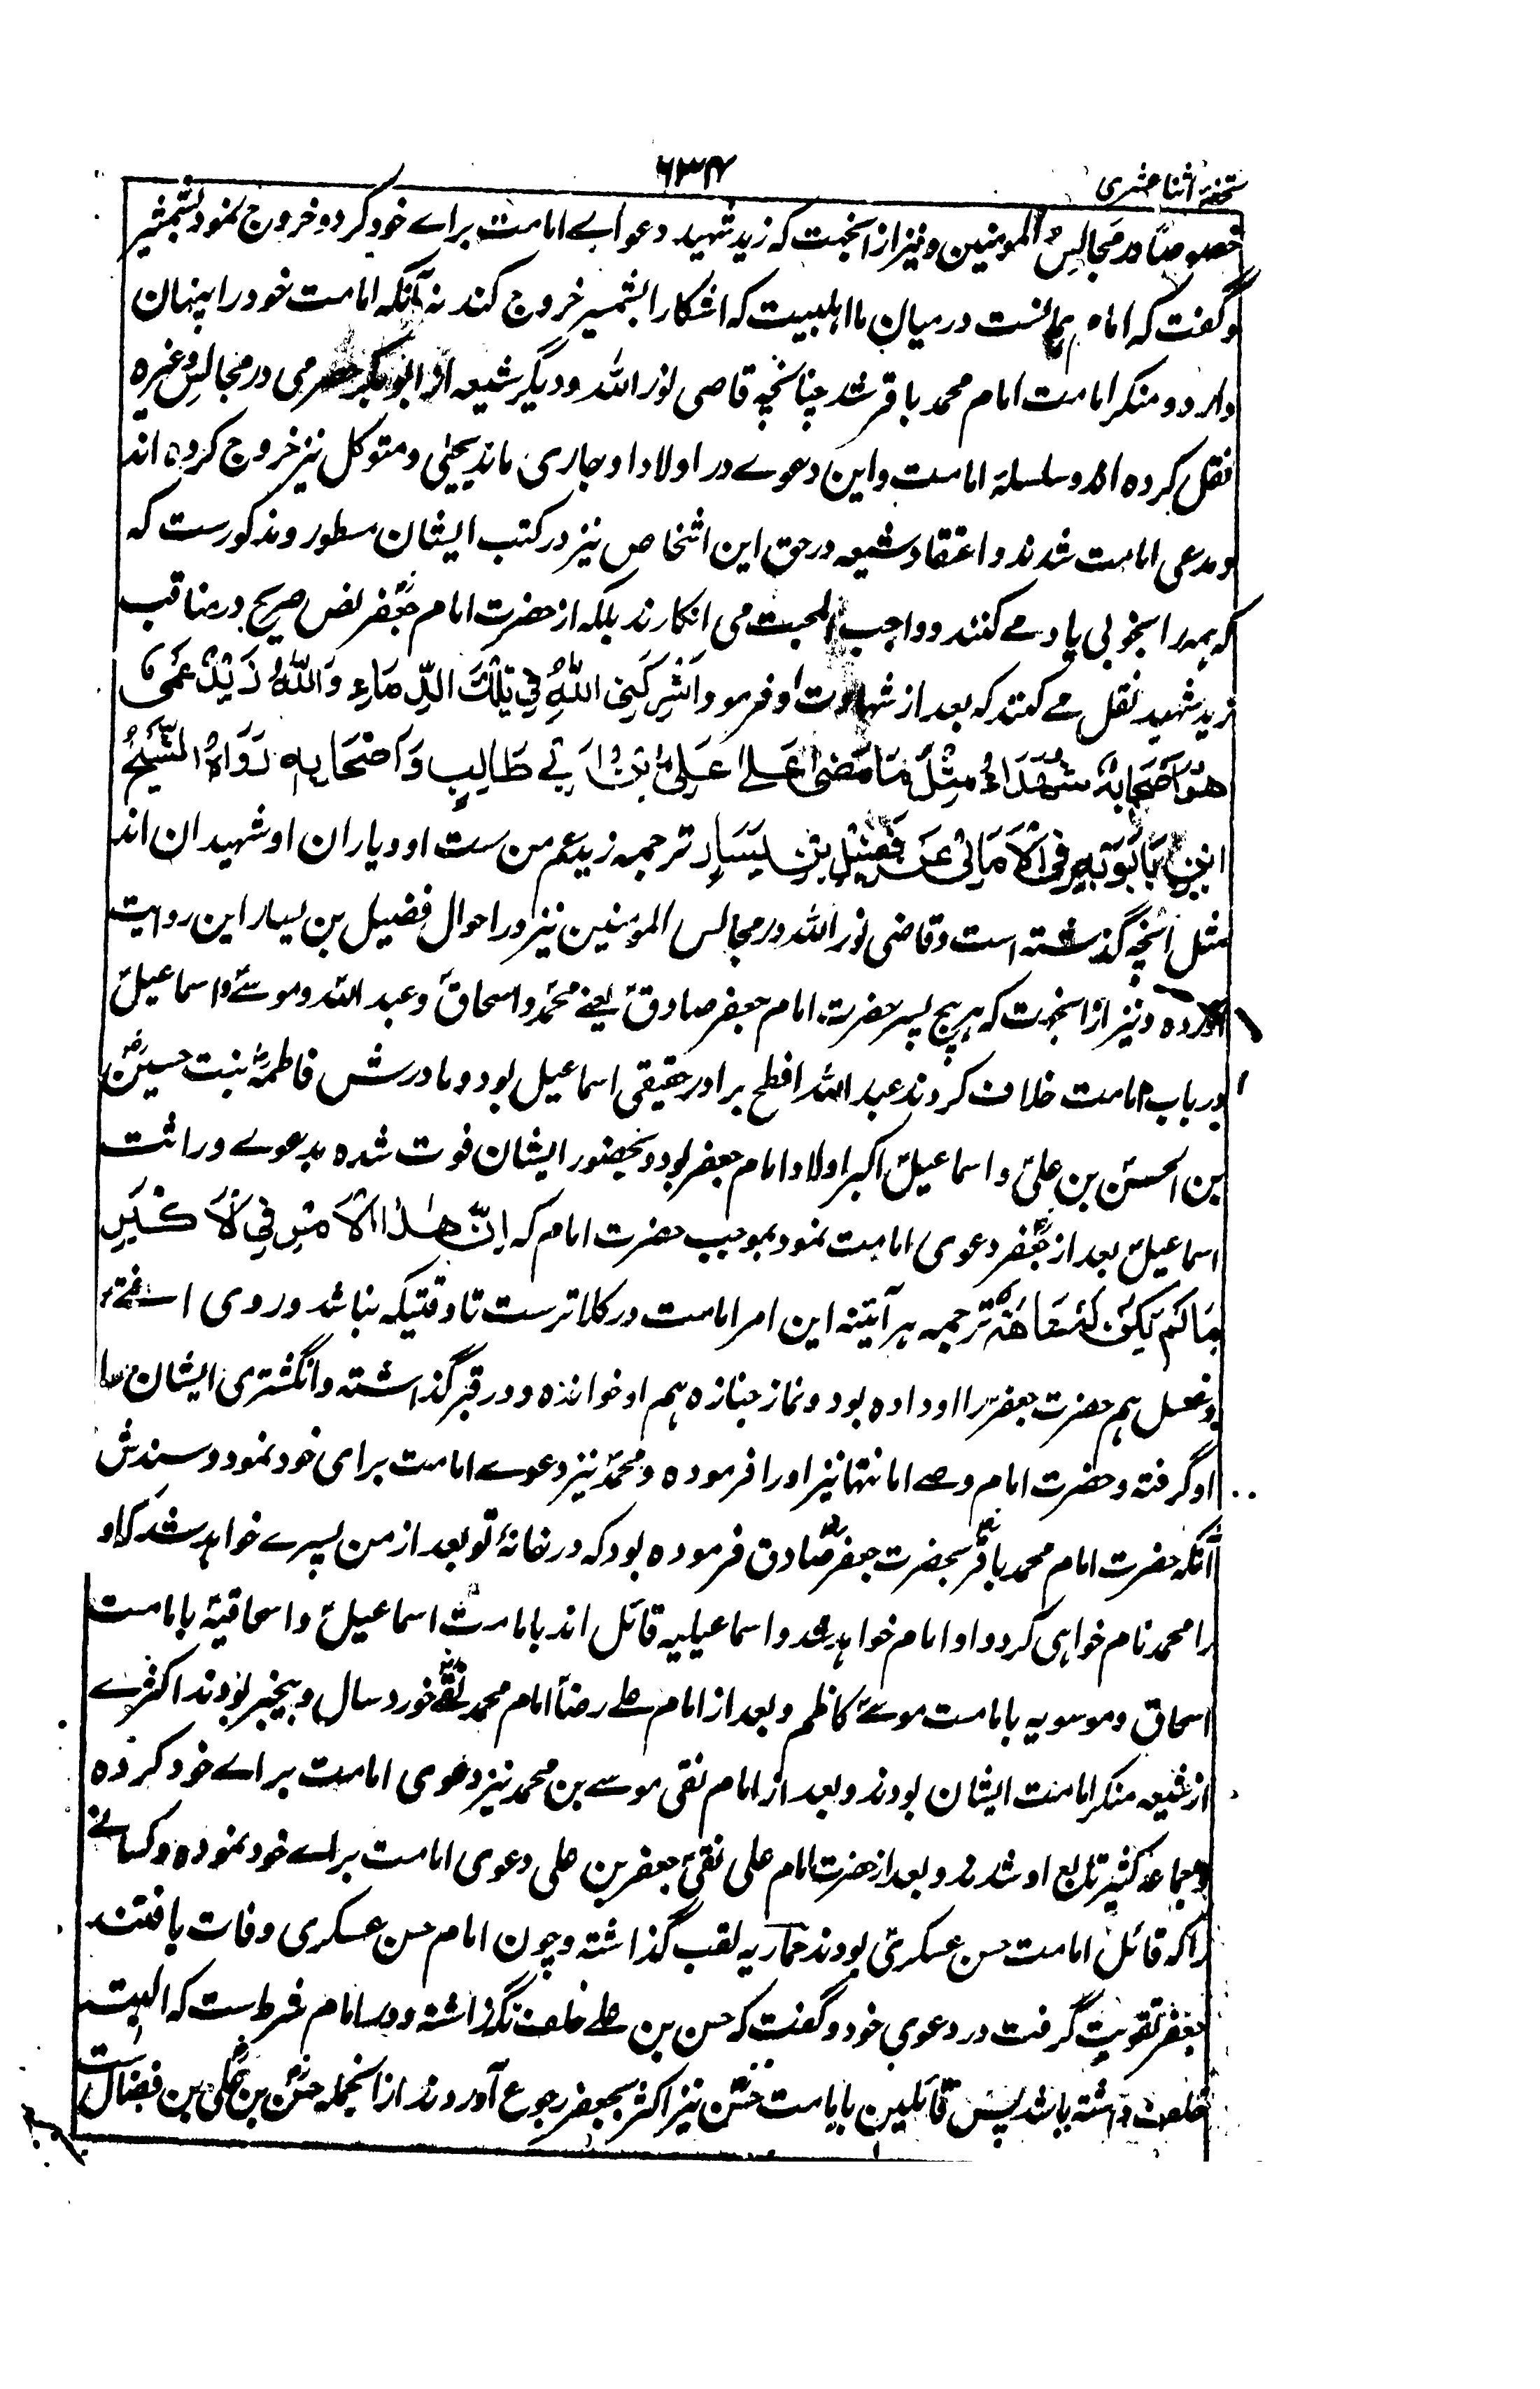 تحفۂ اثنا عشری
۶۳۴
خصوصاً در مجالس المومنین و نیز از انجهت که زید شهید دعوای امامت براے خود کرد و خروج نمود بشمشیر
و گفت که امام همانست درمیان ما اهلبیت که اشکارا بشمشیر خروج کند نه آنکه امامت خود را پنهان
دارد و منکر امامت امام محمد باقر شد چنانچه قاضی نور الله و دیگر شیعه از ابوبکر حضرمی در مجالس وغیره
نقل کرده اند و سلسلهٔ امامت و این دعوے در اولاد او جاری ماند یحیٰی و متوکل نیز خروج کرده اند
و مدعی امامت شدند و اعتقاد شیعه در حق این اشخاص نیز در کتب ایشان مسطور و مذکورست که
که همه را بخوبی یاد مے کنند و واجب المحبت می انکارند بلکه از حضرت امام جعفر نص صریح در مناقب
زید شهید نقل مے کنند که بعد از شهادت او فرمود اَشْرَكَنِی اللّٰهُ فِي تِلْكَ الدِّمَاءِ وَاللّٰهِ زَيْدٌ عَمِّی
هُوَ وَاَصْحَابُهٗ شُهَدَاءُ مِثْلَ مَا مَضٰی عَلَی عَلِیِّ بْنِ اَبِي طَالِبٍ وَاَصْحَابِهٖ رَوَاهُ الشَّيْخُ
ابْنِ بَابَوَيْهِ فِی الْاَمَالِیْ عَنْ فُضَيْلِ بْنِ يَسَارٍ ترجمه زید عم من ست او و یاران او شهیدان اند
مثل انچه گذشته است و قاضی نور الله در مجالس المومنین نیز در احوال فضیل بن یسار این روایت
آورده و نیز از انجهت که هر پنج پسر حضرت امام جعفر صادقؑ یعنے محمدؑ و اسحاقؑ و عبد الله و موسےٰؑ و اسماعیلؑ
در باب امامت خلاف کردند عبد الله افطح برادر حقیقی اسماعیل بود و مادرش فاطمهؓ بنت حسینؓ
بن الحسنؑ بن علیؑ و اسماعیلؑ اکبر اولاد امام جعفر بود و بحضور ایشان فوت شده بدعوے وراثت
اسماعیلؑ بعد از جعفرؑ دعوی امامت نمود بموجب حضرت امام که اِنَّ هٰذَا الْاَمْرَ فِي الْاَكْبَرِ
مَا لَمْ يَكُنْ بِهٖ عَاهَةٌ ترجمه هر آئینه این امر امامت در کلاترست تا وقتیکه نباشد در وی اٰفتے
و غسل هم حضرت جعفرؑ را او داده بود و نماز جنازه هم او خوانده و در قبر گذاشته و انگشتری ایشان را
او گرفته و حضرت امام وصے امانتها نیز او را فرموده و محمدؑ نیز دعوے امامت برای خود نمود و سندش
آنکه حضرت امام محمد باقرؑ بحضرت جعفر صادقؑ فرموده بود که در خانهٔ تو بعد از من پسرے خواهد شد که او
را محمد نام خواهی کرد و او امام خواهد شد و اسماعیلیه قائل اند بامامت اسماعیلؑ و اسحاقیهٔ بامامت
اسحاق و موسویه بامامت موسےٰ کاظم و بعد از امام علے رضاؑ امام محمد تقےؑ خورد سال و بیخبر بودند اکثرے
از شیعه منکر امامت ایشان بودند و بعد از امام نقی موسے بن محمد نیز دعوی امامت براے خود کرده
و جماعهٔ کثیر تابع او شدند و بعد از حضرت امام علی نقیؑ جعفر بن علی دعوی امامت براے خود نموده و کسانے
را که قائل امامت حسن عسکریؑ بودند حماریه لقب گذاشته و چون امام حسن عسکری وفات یافتند
جعفر تقویت گرفت در دعوی خود و گفت که حسن بن علے خلف نگذاشته و در امام شرط ست که البته
خلف داشته باشد پس قائلین بامامت حسنؑ نیز اکثر بجعفر رجوع آوردند از انجمله حسن بن علی بن فضال ست